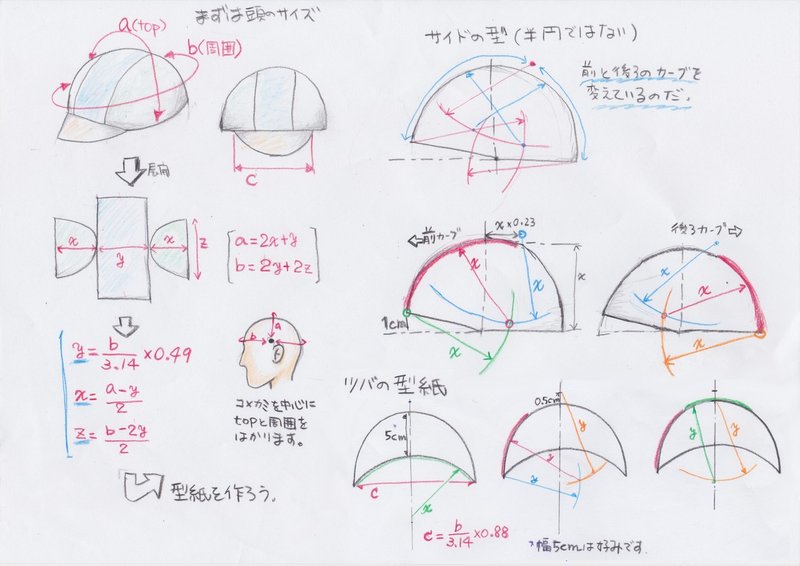 まずは頭のサイズ
a(top)
b(周囲)
c
展開
x
y
x
z
a=2x+y
b=2y+2z
y=b/3.14×0.49
x=a-y/2
z=b-2y/2
a
b
コメカミを中心に
topと周囲を
はかります。
型紙を作ろう。
サイドの型(半円ではない)
前と後ろのカーブを
変えているのだ。
前カーブ
x×0.23
x
x
x
x
1cm
後ろカーブ
x
x
x
ツバの型紙
5cm
c
x
c=b/3.14×0.88
0.5cm
y
y
y
y
y
幅5cmは好みです